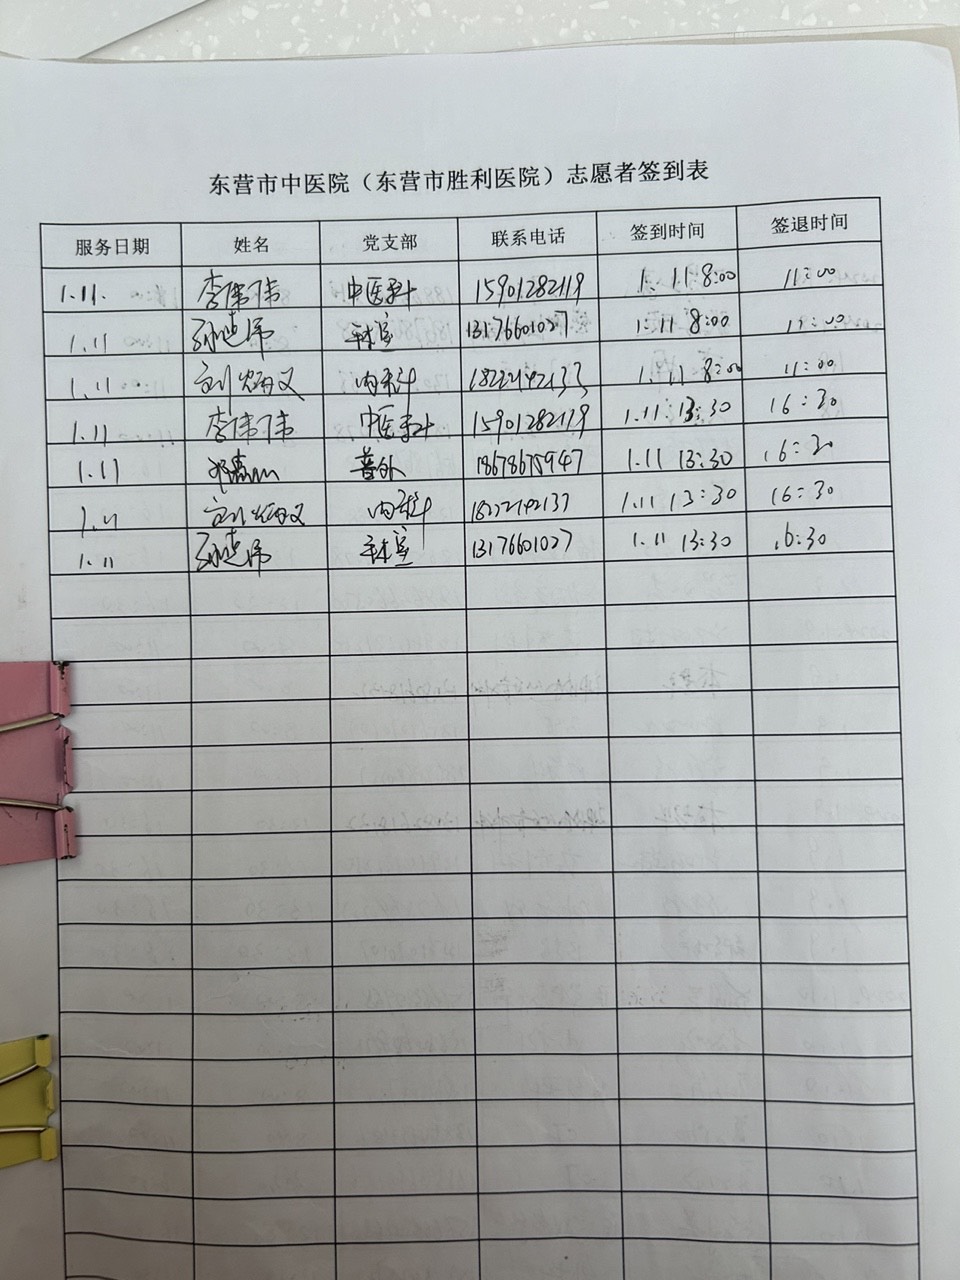 东营市中医院（东营市胜利医院）志愿者签到表
服务日期 姓名 党支部 联系电话 签到时间 签退时间
1.11. 李伟伟 中医科 15901282119 1.11 8:00 11:00
1.11 孙建伟 手术室 13176601027 1.11 8:00 11:00
1.11 刘炳义 内科 18222192133 1.11 8:00 11:00
1.11 李伟伟 中医科 15901282119 1.11 13:30 16:30
1.11 普外 18678675947 1.11 13:30 16:30
1.11 刘炳义 内科 1.11 13:30 16:30
1.11 孙建伟 手术室 13176601027 1.11 13:30 16:30